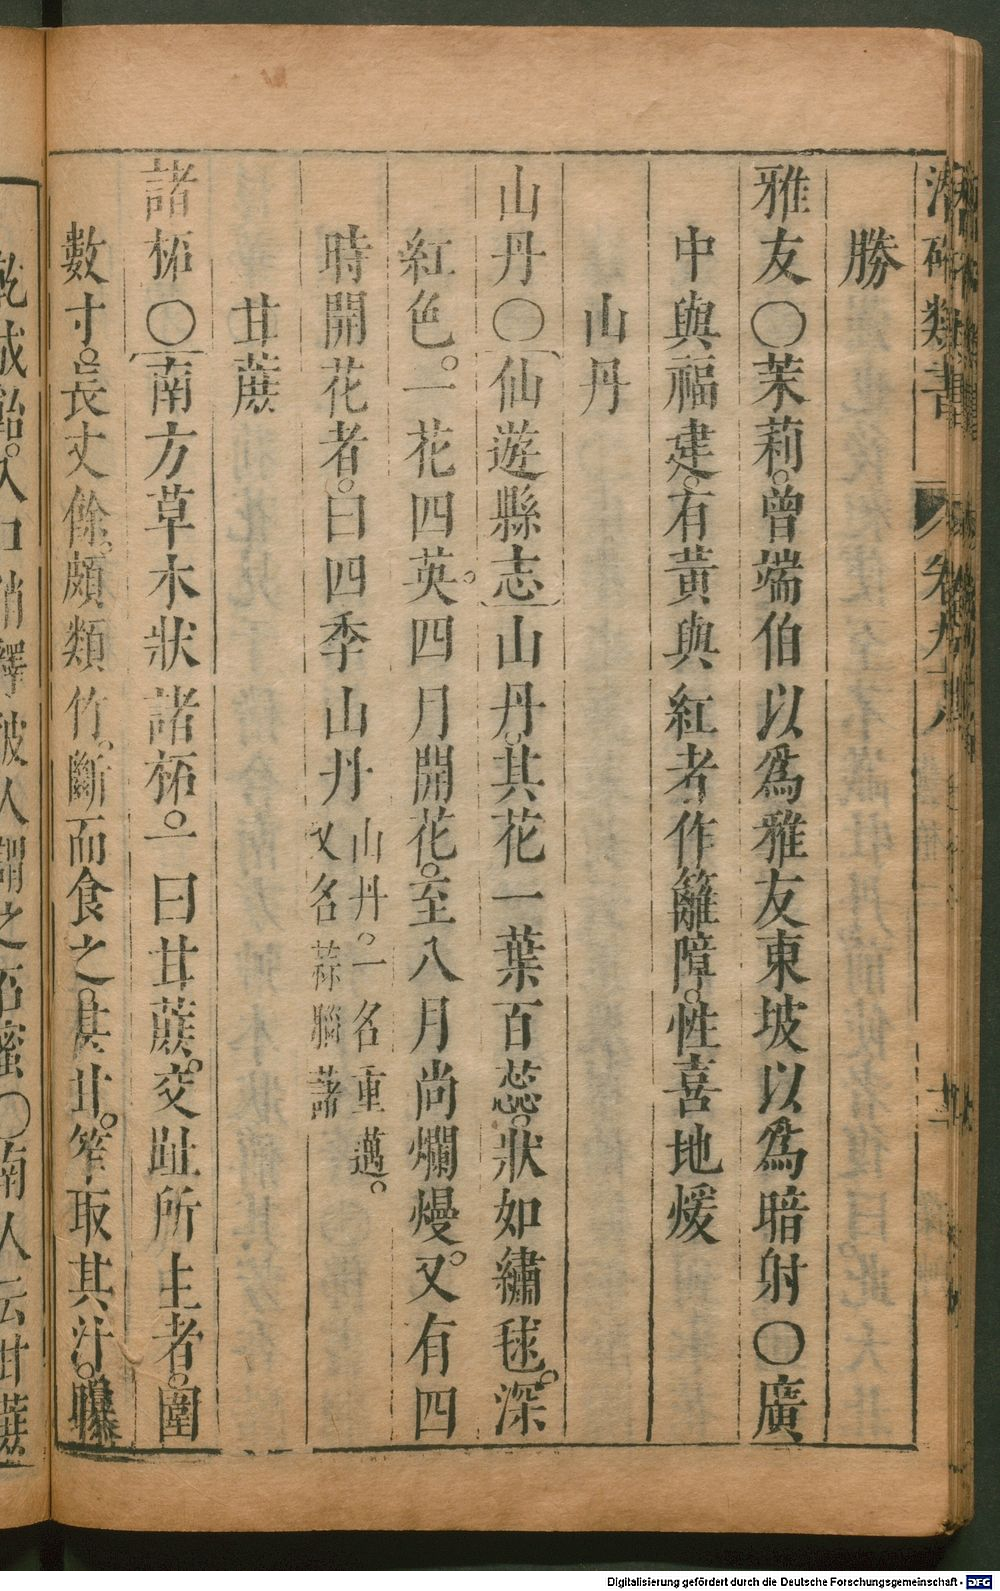 潛確類書 卷九十八
勝
雅友〇茉莉。曾端伯以爲雅友東坡以爲暗射〇廣
中與福建。有黃與紅者作籬障。性喜地煖
山丹
山丹〇仙遊縣志山丹。其花一葉百蕊。狀如繡毬。深
紅色。一花四英。四月開花。至八月尚爛熳。又有四
時開花者。曰四季山丹 山丹。一名重邁。
又名蒜腦藷
甘蔗
諸柘〇南方草木狀諸柘。一曰甘蔗。交趾所生者。圍
數寸。長丈餘。頗類竹。斷而食之。甚甘。笮取其汁。曝
乾成飴。入口消釋彼人謂之石蜜〇南人云甘蔗
Digitalisierung gefördert durch die Deutsche Forschungsgemeinschaft - DFG